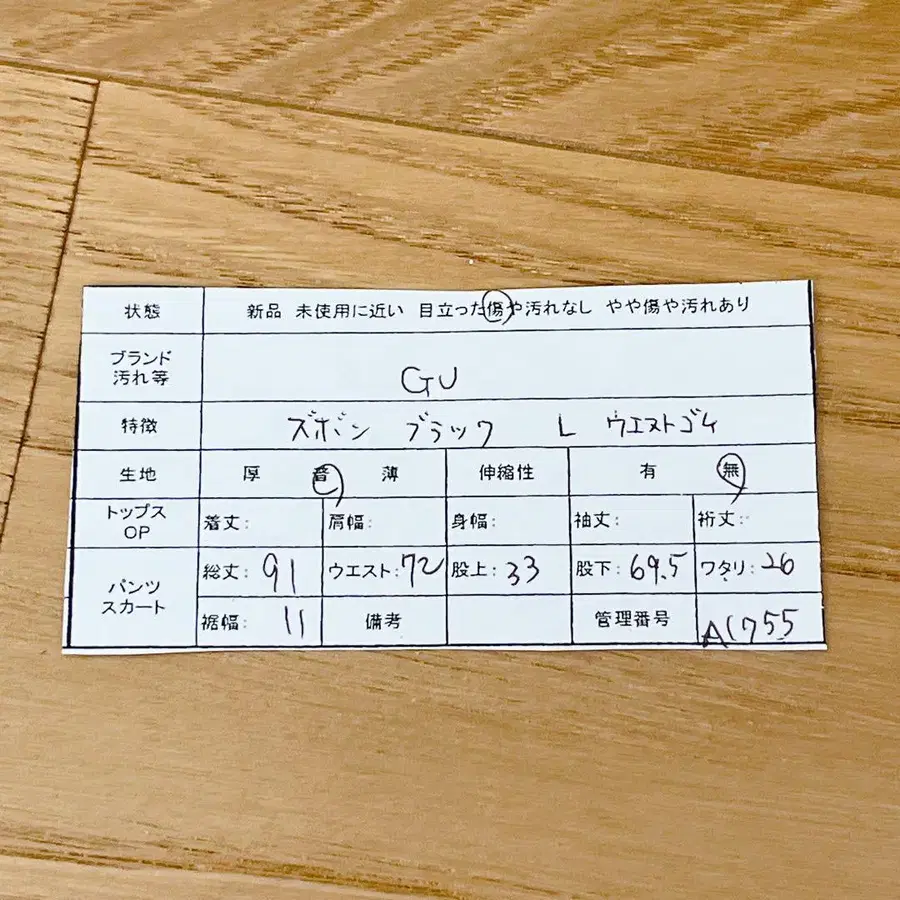 状態 新品 未使用に近い 目立った傷や汚れなし やや傷や汚れあり
ブランド
汚れ等
GU
特徴 ズボン ブラック L ウエストゴム
生地 厚 普 薄 伸縮性 有 無
トップス
OP
着丈: 肩幅: 身幅: 袖丈: 裄丈:
パンツ
スカート
総丈: 91 ウエスト: 72 股上: 33 股下: 69.5 ワタリ: 26
裾幅: 11 備考 管理番号 A1755